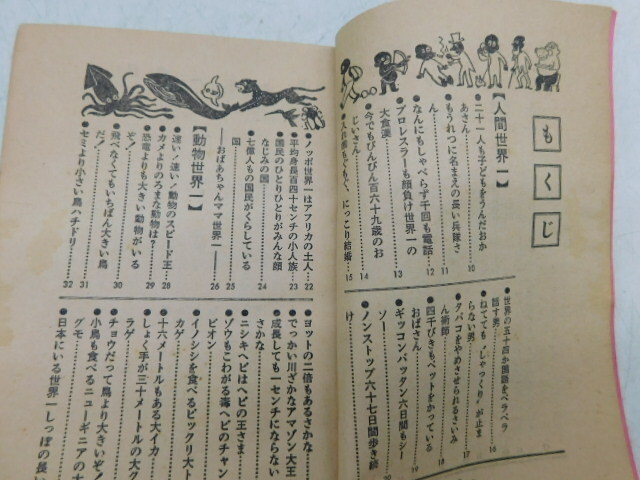 もくじ
【人間世界一】
●二十一人も子どもをうんだおか
あさん……10
●もうれつに名まえの長い兵隊さ
ん……11
●なんにもしゃべらず千回も電話…12
●プロレスラーも顔負け世界一の
大食漢……13
●今でもぴんぴん百六十九歳のお
じいさん……14
にっこり結婚…15
●世界の五十四か国語をペラペラ
話す男……16
●ねてても"しゃっくり"が止ま
らない男……17
●タバコをやめさせられるさいみ
ん術師……18
●四千びきも、ペットをかっている
おばさん……19
●ギッコンバッタン六日間もシー
ソー……20
●ノンストップ六十七日間歩き続
け
●ノッポ世界一はアフリカの土人…22
●平均身長百四十センチの小人族…23
●国民のひとりひとりがみんな顔
なじみの国……24
●七億人もの国民がくらしている
国……25
――おばあちゃんママ世界一――26
【動物世界一】
●速い！速い！動物のスピード王…28
●カメよりのろまな動物は？……29
●恐竜よりも大きい動物がいる
ぞ！……30
●飛べなくてもいちばん大きい鳥
だ！……31
●セミより小さい鳥ハチドリ……32
●ヨットの二倍もあるさかな……
●でっかい川ざかなアマゾン大王
●成長しても一センチにならない
さかな……
●ニシキヘビはヘビの王さま……
●ゾウもこわがる毒ヘビのチャン
ピオン……
●イノシシを食べるビックリ大ト
カゲ……
●十六メートルもある大イカ……
●しょく手が三十メートルの大ク
ラゲ……
●チョウだって鳥より大きいぞ！
●小鳥も食べるニューギニアの大
グモ……
●日本にいる世界一しっぽの長い